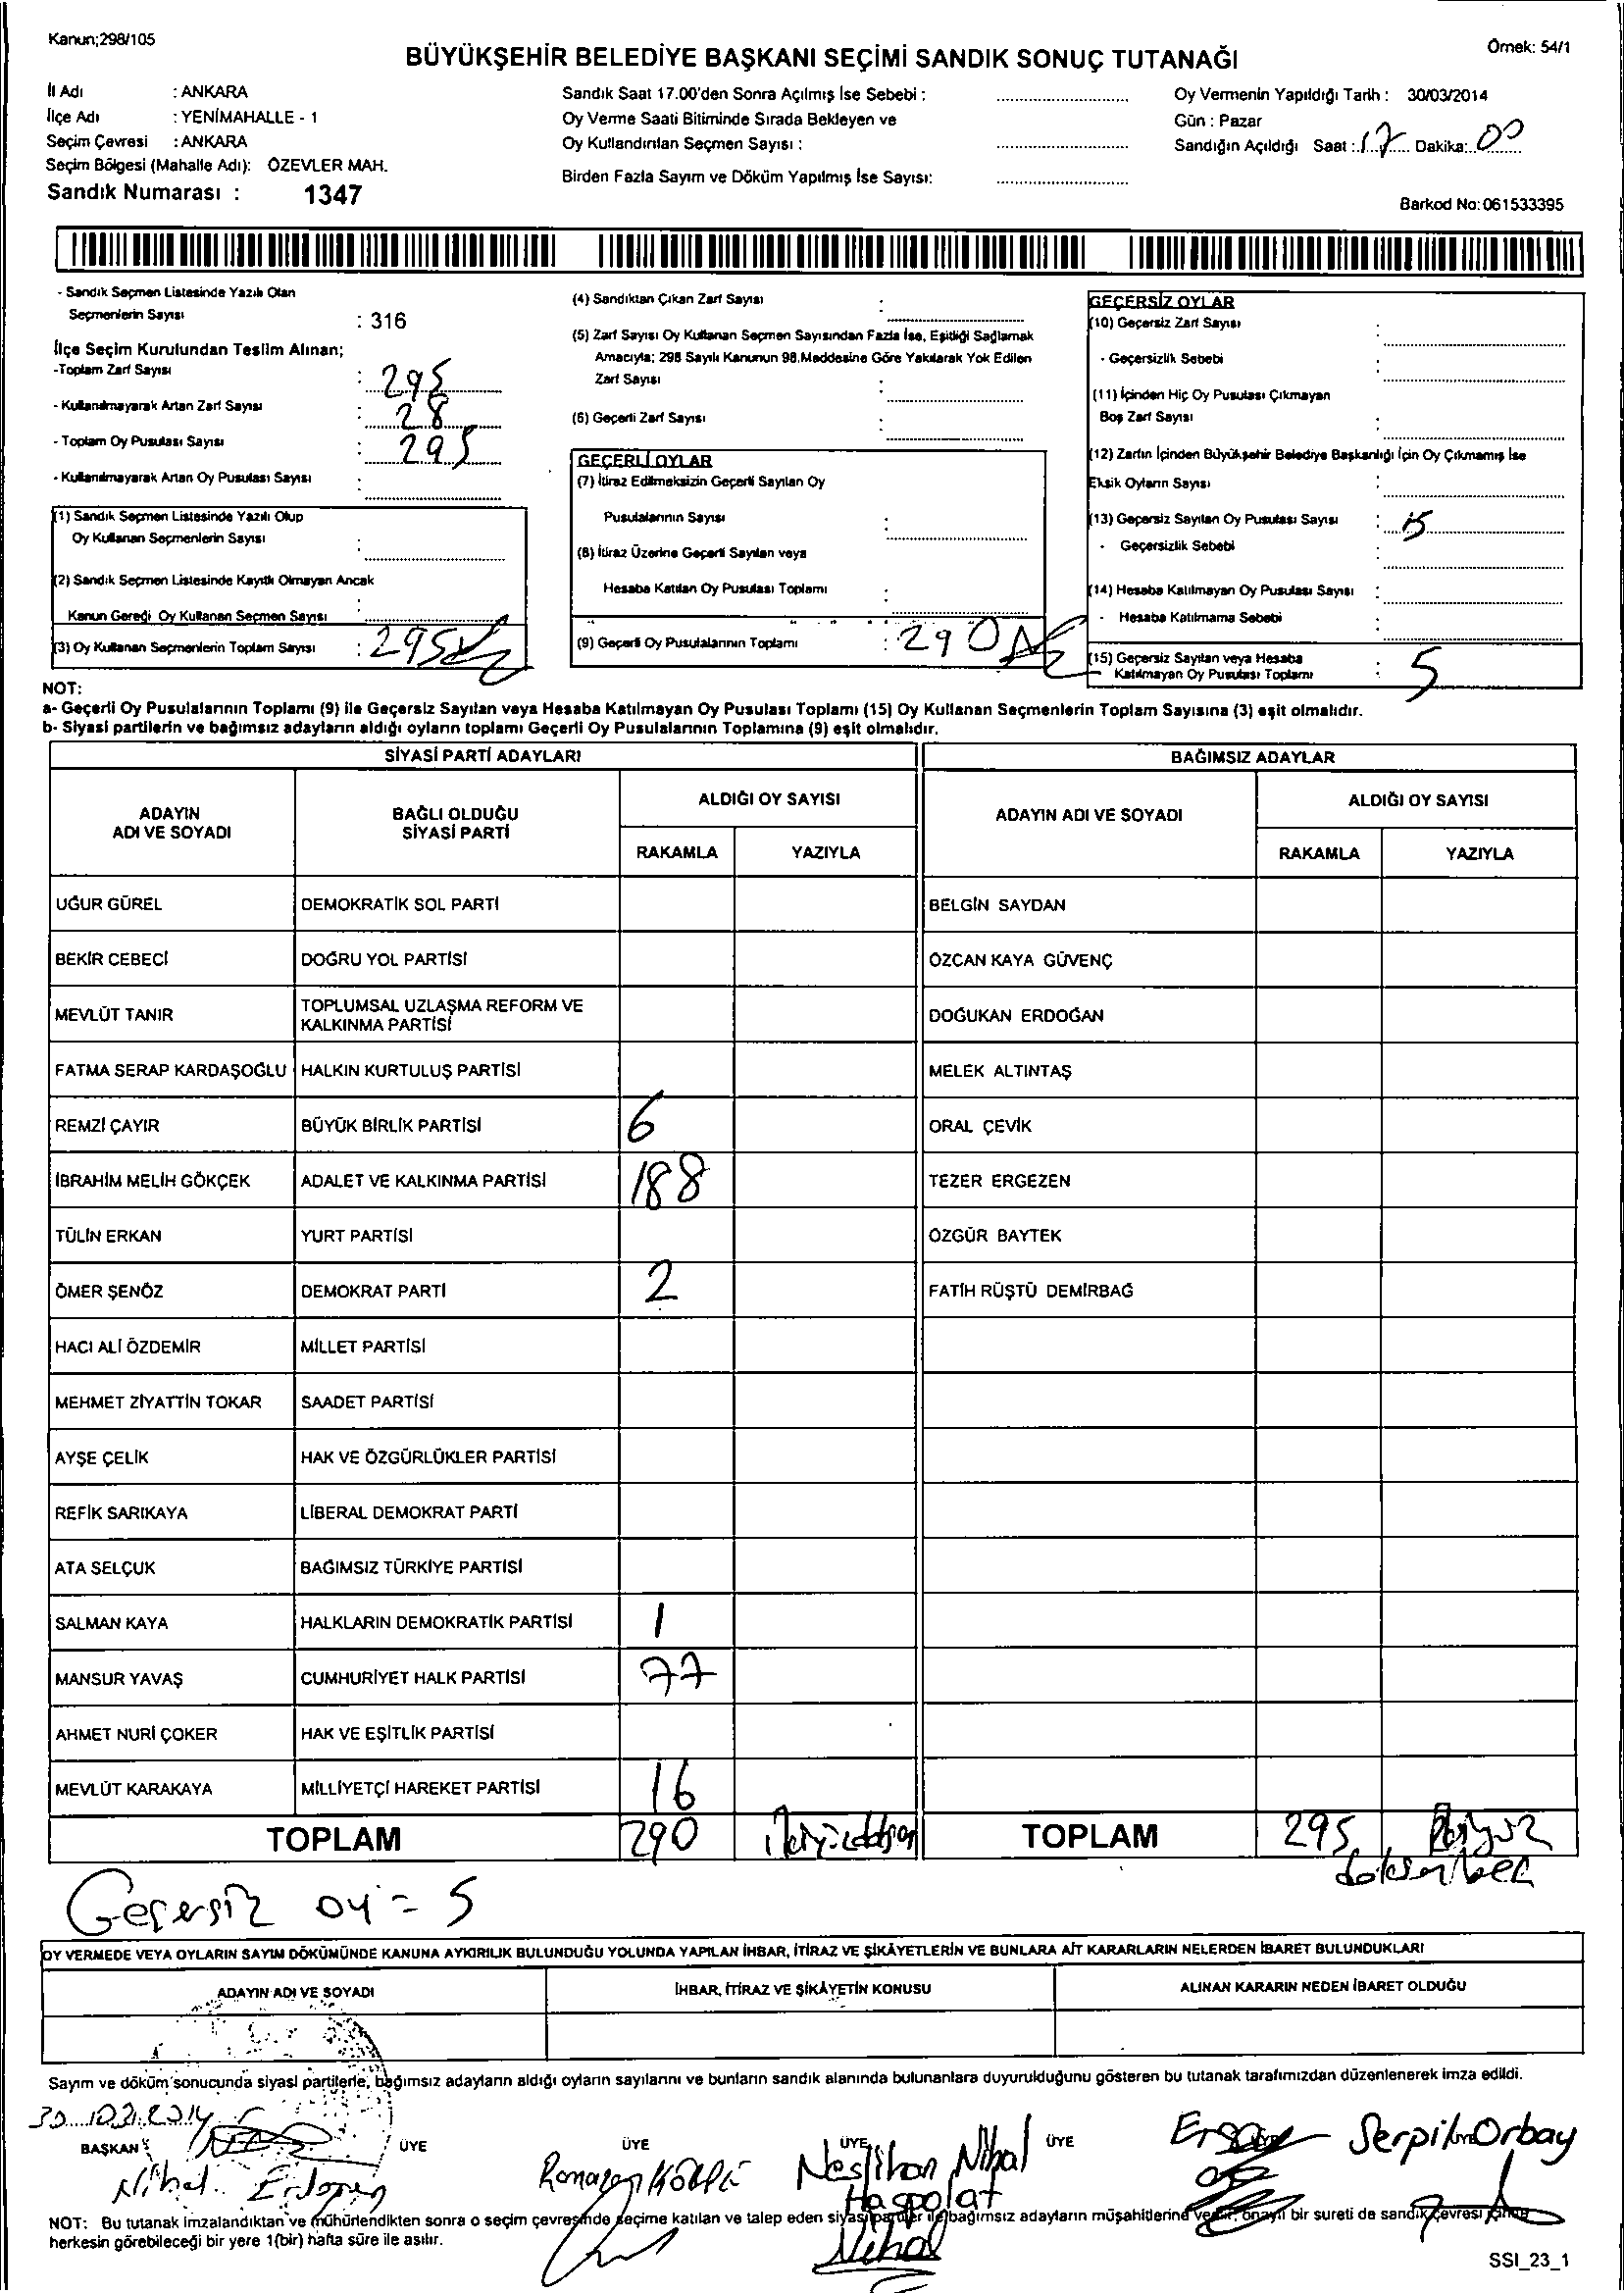 Kanun;298/105
Örnek: 54/1
BÜYÜKŞEHİR BELEDİYE BAŞKANI SEÇİMİ SANDIK SONUÇ TUTANAĞI
İl Adı : ANKARA
İlçe Adı : YENİMAHALLE - 1
Seçim Çevresi : ANKARA
Seçim Bölgesi (Mahalle Adı): ÖZEVLER MAH.
Sandık Numarası : 1347
Sandık Saat 17.00'den Sonra Açılmış İse Sebebi :
Oy Verme Saati Bitiminde Sırada Bekleyen ve
Oy Kullandırılan Seçmen Sayısı :
Birden Fazla Sayım ve Döküm Yapılmış İse Sayısı:
Oy Vermenin Yapıldığı Tarih : 30/03/2014
Gün : Pazar
Sandığın Açıldığı Saat : 17 Dakika: 00
Barkod No: 061533395
- Sandık Seçmen Listesinde Yazılı Olan
Seçmenlerin Sayısı : 316
İlçe Seçim Kurulundan Teslim Alınan;
-Toplam Zarf Sayısı : 295
- Kullanılmayarak Artan Zarf Sayısı : 28
- Toplam Oy Pusulası Sayısı : 295
- Kullanılmayarak Artan Oy Pusulası Sayısı :
(1) Sandık Seçmen Listesinde Yazılı Olup
Oy Kullanan Seçmenlerin Sayısı :
(2) Sandık Seçmen Listesinde Kayıtlı Olmayan Ancak
Kanun Gereği Oy Kullanan Seçmen Sayısı :
(3) Oy Kullanan Seçmenlerin Toplam Sayısı : 295
(4) Sandıktan Çıkan Zarf Sayısı :
(5) Zarf Sayısı Oy Kullanan Seçmen Sayısından Fazla İse, Eşitliği Sağlamak
Amacıyla; 298 Sayılı Kanunun 98.Maddesine Göre Yakılarak Yok Edilen
Zarf Sayısı :
(6) Geçerli Zarf Sayısı :
GEÇERLİ OYLAR
(7) İtiraz Edilmeksizin Geçerli Sayılan Oy
Pusulalarının Sayısı :
(8) İtiraz Üzerine Geçerli Sayılan veya
Hesaba Katılan Oy Pusulası Toplamı :
(9) Geçerli Oy Pusulalarının Toplamı : 290
GEÇERSİZ OYLAR
(10) Geçersiz Zarf Sayısı :
- Geçersizlik Sebebi :
(11) İçinden Hiç Oy Pusulası Çıkmayan
Boş Zarf Sayısı :
(12) Zarfın İçinden Büyükşehir Belediye Başkanlığı İçin Oy Çıkmamış İse
Eksik Oyların Sayısı :
(13) Geçersiz Sayılan Oy Pusulası Sayısı :
- Geçersizlik Sebebi
(14) Hesaba Katılmayan Oy Pusulası Sayısı :
- Hesaba Katılmama Sebebi :
(15) Geçersiz Sayılan veya Hesaba
Katılmayan Oy Pusulası Toplamı : 5
NOT:
a- Geçerli Oy Pusulalarının Toplamı (9) ile Geçersiz Sayılan veya Hesaba Katılmayan Oy Pusulası Toplamı (15) Oy Kullanan Seçmenlerin Toplam Sayısına (3) eşit olmalıdır.
b- Siyasi partilerin ve bağımsız adayların aldığı oyların toplamı Geçerli Oy Pusulalarının Toplamına (9) eşit olmalıdır.
SİYASİ PARTİ ADAYLARI BAĞIMSIZ ADAYLAR
ADAYIN ADI VE SOYADI BAĞLI OLDUĞU SİYASİ PARTİ ALDIĞI OY SAYISI ADAYIN ADI VE SOYADI ALDIĞI OY SAYISI
RAKAMLA YAZIYLA RAKAMLA YAZIYLA
UĞUR GÜREL DEMOKRATİK SOL PARTİ BELGİN SAYDAN
BEKİR CEBECİ DOĞRU YOL PARTİSİ ÖZCAN KAYA GÜVENÇ
MEVLÜT TANIR TOPLUMSAL UZLAŞMA REFORM VE KALKINMA PARTİSİ DOĞUKAN ERDOĞAN
FATMA SERAP KARDAŞOĞLU HALKIN KURTULUŞ PARTİSİ MELEK ALTINTAŞ
REMZİ ÇAYIR BÜYÜK BİRLİK PARTİSİ 6 ORAL ÇEVİK
İBRAHİM MELİH GÖKÇEK ADALET VE KALKINMA PARTİSİ 188 TEZER ERGEZEN
TÜLİN ERKAN YURT PARTİSİ ÖZGÜR BAYTEK
ÖMER ŞENÖZ DEMOKRAT PARTİ 2 FATİH RÜŞTÜ DEMİRBAĞ
HACI ALİ ÖZDEMİR MİLLET PARTİSİ
MEHMET ZİYATTİN TOKAR SAADET PARTİSİ
AYŞE ÇELİK HAK VE ÖZGÜRLÜKLER PARTİSİ
REFİK SARIKAYA LİBERAL DEMOKRAT PARTİ
ATA SELÇUK BAĞIMSIZ TÜRKİYE PARTİSİ
SALMAN KAYA HALKLARIN DEMOKRATİK PARTİSİ 1
MANSUR YAVAŞ CUMHURİYET HALK PARTİSİ 77
AHMET NURİ ÇOKER HAK VE EŞİTLİK PARTİSİ
MEVLÜT KARAKAYA MİLLİYETÇİ HAREKET PARTİSİ 16
TOPLAM 290 ikiyüzdoksan TOPLAM 295
doksanbeş
Geçersiz oy = 5
OY VERMEDE VEYA OYLARIN SAYIM DÖKÜMÜNDE KANUNA AYKIRILIK BULUNDUĞU YOLUNDA YAPILAN İHBAR, İTİRAZ VE ŞİKÂYETLERİN VE BUNLARA AİT KARARLARIN NELERDEN İBARET BULUNDUKLARI
ADAYIN ADI VE SOYADI İHBAR, İTİRAZ VE ŞİKÂYETİN KONUSU ALINAN KARARIN NEDEN İBARET OLDUĞU
Sayım ve döküm sonucunda siyasi partilerle, bağımsız adayların aldığı oyların sayılarını ve bunların sandık alanında bulunanlara duyurulduğunu gösteren bu tutanak tarafımızdan düzenlenerek imza edildi.
30.03.2014
BAŞKAN ÜYE ÜYE ÜYE ÜYE
Serpil Orbay
Nihal Ramazan Neslihan Nihal
Haspolat
NOT: Bu tutanak imzalandıktan ve mühürlendikten sonra o seçim çevresinde seçime katılan ve talep eden siyasi partiler ile bağımsız adayların müşahitlerine verilir, onaylı bir sureti de sandık çevresi içinde
herkesin görebileceği bir yere 1(bir) hafta süre ile asılır.
Nihal
SSI_23_1